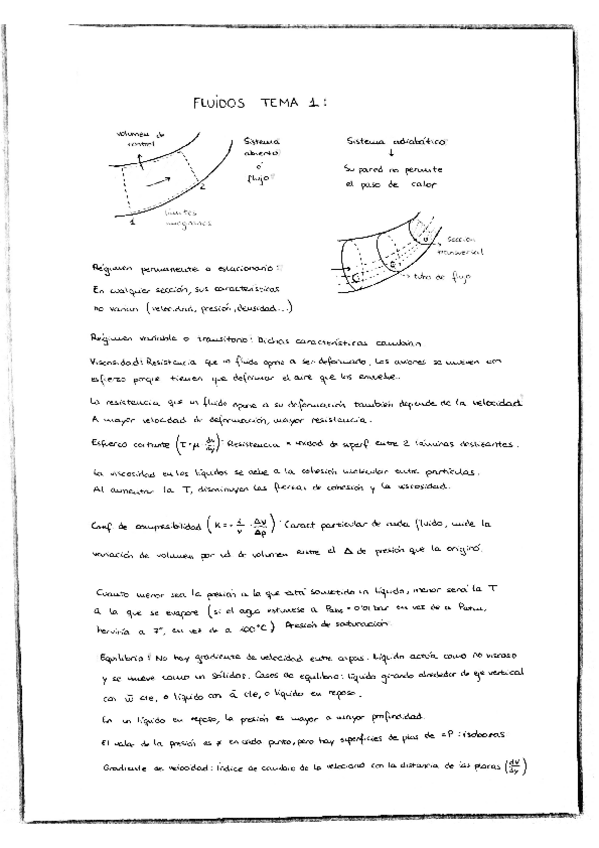 FLUIDOS TEMA 1:
Volumen de
control
Sistema
abierto
o
flujo
Sistema adiabático
↓
Su pared no permite
el paso de calor
1
2
límites
imaginarios
sección
transversal
tubo de flujo
Régimen permanente o estacionario:
En cualquier sección, sus características
no varían (velocidad, presión, densidad...)
Régimen variable o transitorio: Dichas características cambian
Viscosidad: Resistencia que un fluido opone a ser deformado. Los aviones se mueven con
esfuerzo porque tienen que deformar el aire que los envuelve.
La resistencia que un fluido opone a su deformación también depende de la velocidad
A mayor velocidad de deformación, mayor resistencia.
Esfuerzo cortante (τ = μ dv/dy): Resistencia unidad de superf entre 2 láminas deslizantes.
La viscosidad en los líquidos se debe a la cohesión molecular entre partículas.
Al aumentar la T, disminuyen las fuerzas de cohesión y la viscosidad.
Coef de compresibilidad (K = - 1/v · Δv/Δp): Caract particular de cada fluido, mide la
variación de volumen por ud de volumen entre el Δ de presión que la originó.
Cuanto menor sea la presión a la que está sometido un líquido, menor será la T
a la que se evapore (si el agua estuviese a Pabs = 0'01 bar en vez de a Patm,
herviría a 7°, en vez de a 100°C) Presión de saturación
Equilibrio: No hay gradiente de velocidad entre capas. Líquido actúa como no viscoso
y se mueve como un sólido. Casos de equilibrio: líquido girando alrededor de eje vertical
con w̄ cte, o líquido con ā cte, o líquido en reposo.
En un líquido en reposo, la presión es mayor a mayor profundidad.
El valor de la presión es ≠ en cada punto, pero hay superficies de = P: isobaras
Gradiente de velocidad: Índice de cambio de la velocidad con la distancia de las placas (dv/dy)